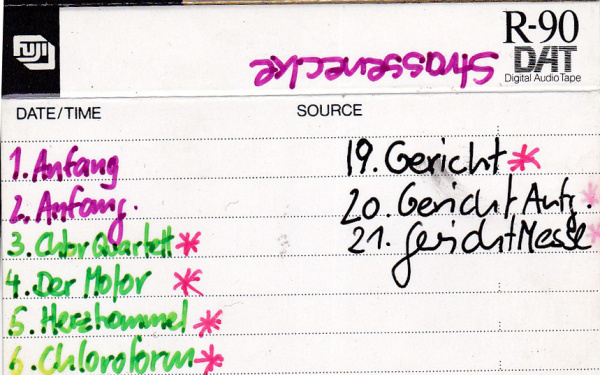 FUJI
R-90
DAT
Digital Audio Tape
Strassenecke
DATE/TIME
SOURCE
1. Anfang
2. Anfang.
3. Chor Quartett *
4. Der Motor *
5. Herzhammel *
6. Chloroform *
19. Gericht *
20. Gericht Anfg. *
21. Gericht Messe *